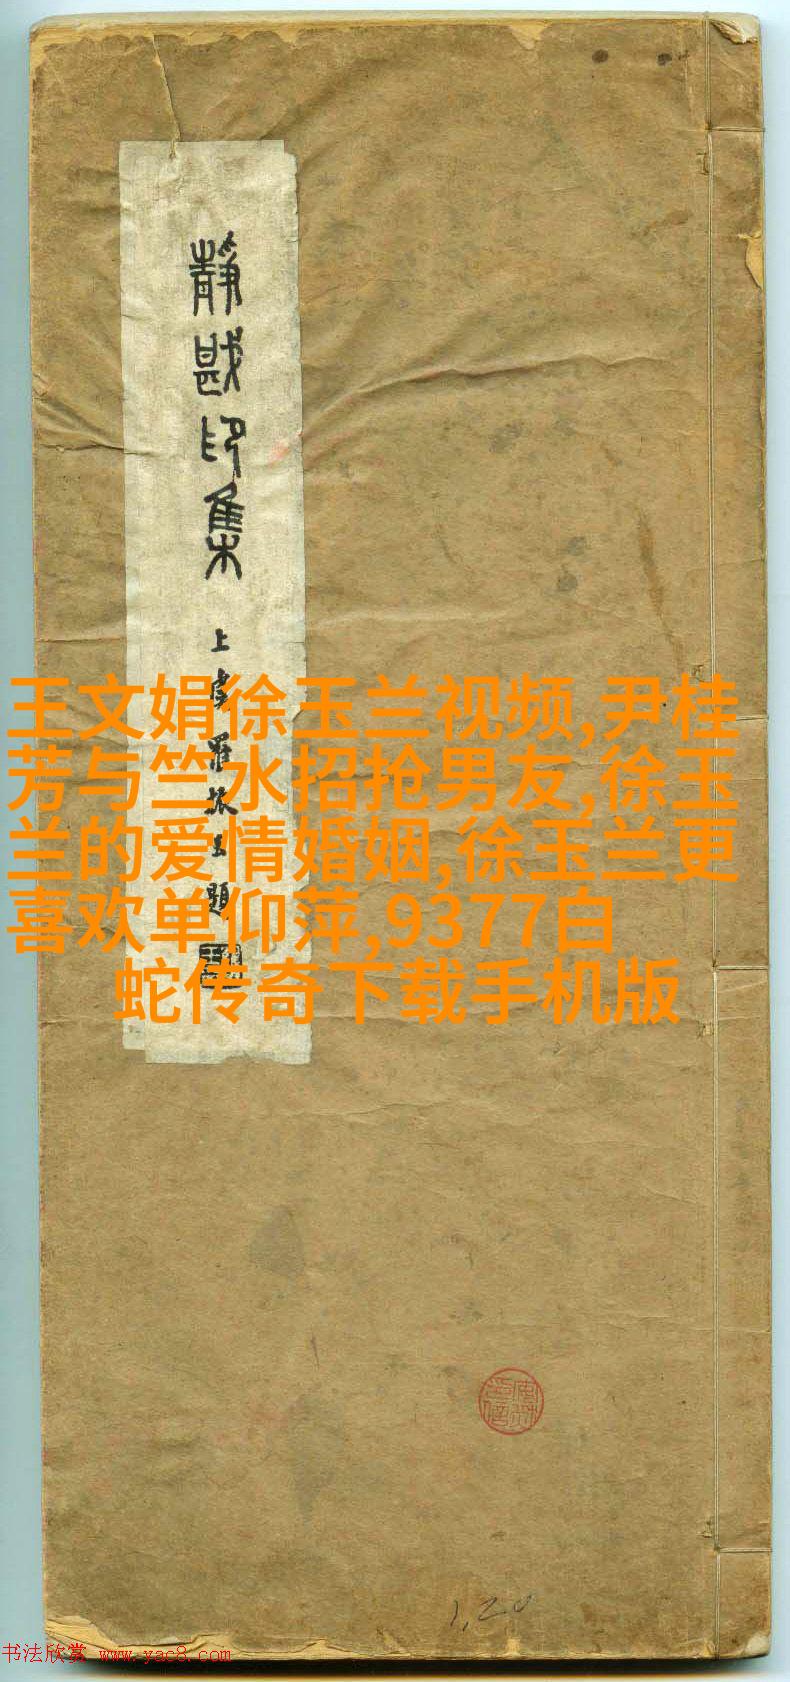 靜戡印集
上虞羅振玉題
王文娟徐玉兰视频,尹桂
芳与竺水招抢男友,徐玉
兰的爱情婚姻,徐玉兰更
喜欢单仰萍,9377白
蛇传奇下载手机版
1,20
书法欣赏 www.yac8.com